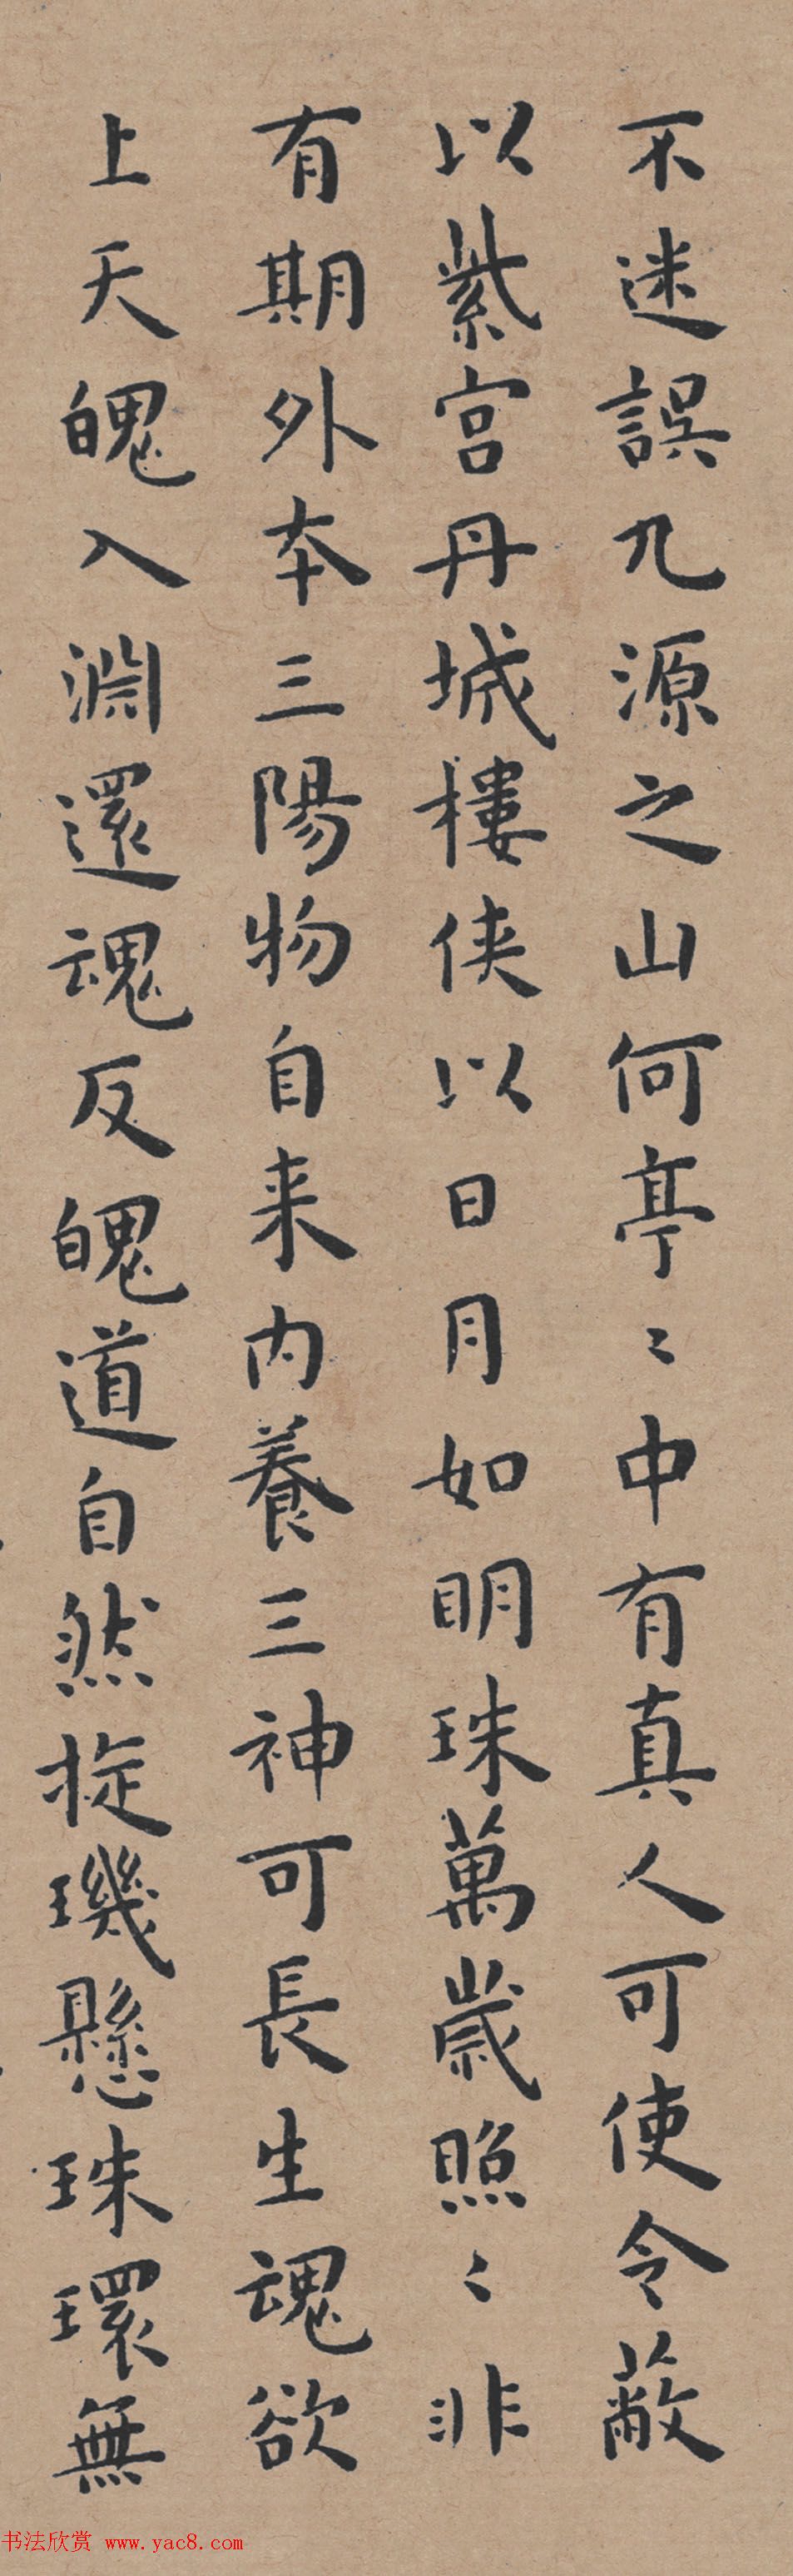 不迷誤九源之山何亭〻中有真人可使令蔽
以紫宫丹城樓侠以日月如明珠萬歲照〻非
有期外本三陽物自来内養三神可長生魂欲
上天魄入淵還魂反魄道自然旋璣懸珠環無
书法欣赏 www.yac8.com